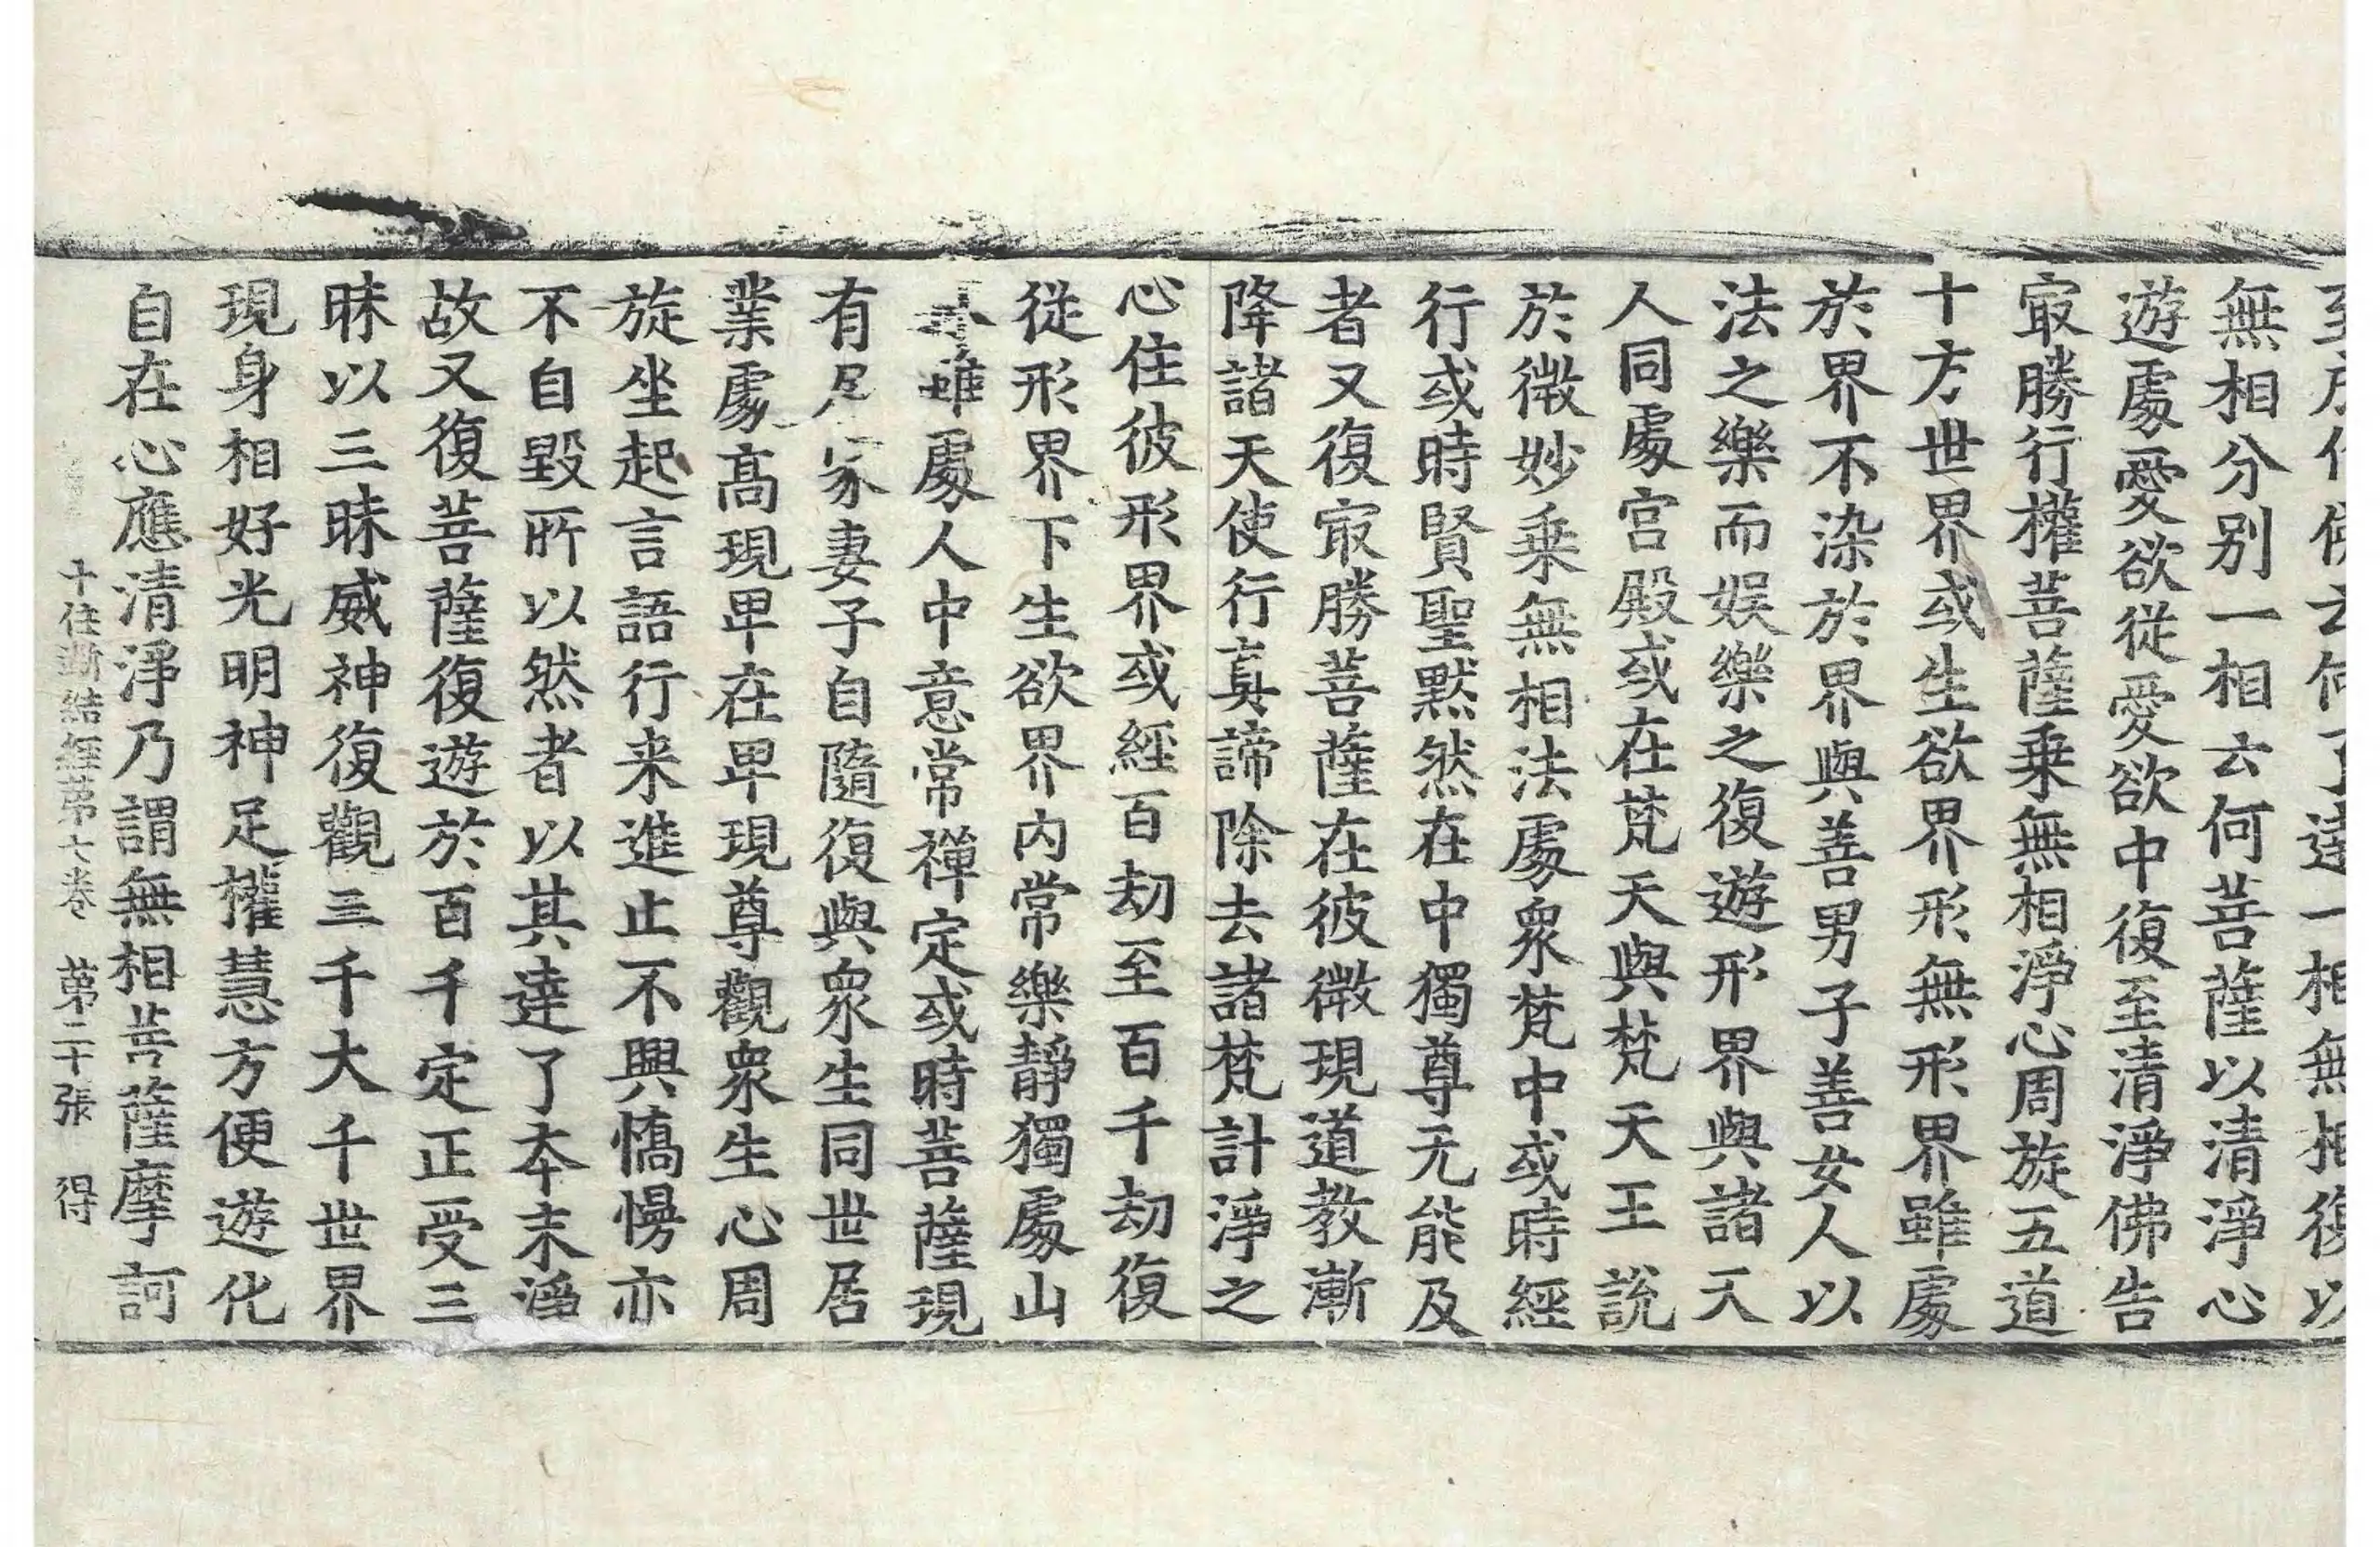 一相無相復以
無相分别一相云何菩薩以清淨心
遊處愛欲從愛欲中復至清淨佛告
㝡勝行權菩薩乗無相淨心周旋五道
十方世界或生欲界形無形界雖處
於界不染於界與善男子善女人以
法之樂而娛樂之復遊形界與諸天
人同處宮殿或在梵天與梵天王說
於微妙乗無相法處衆梵中或時經
行或時賢聖默然在中獨尊无能及
者又復㝡勝菩薩在彼微現道教漸
降諸天使行真諦除去諸梵計淨之
心住彼形界或經百劫至百千劫復
從形界下生欲界内常樂靜獨處山
雖處人中意常禪定或時菩薩現
有居家妻子自隨復與衆生同世居
業處高現卑在卑現尊觀衆生心周
旋坐起言語行来進止不興憍慢亦
不自毀所以然者以其達了夲末淨
故又復菩薩復遊於百千定正受三
昧以三昧威神復觀三千大千世界
現身相好光明神足權慧方便遊化
自在心應清淨乃謂無相菩薩摩訶
十住斷結經苐七卷　苐二十張　得